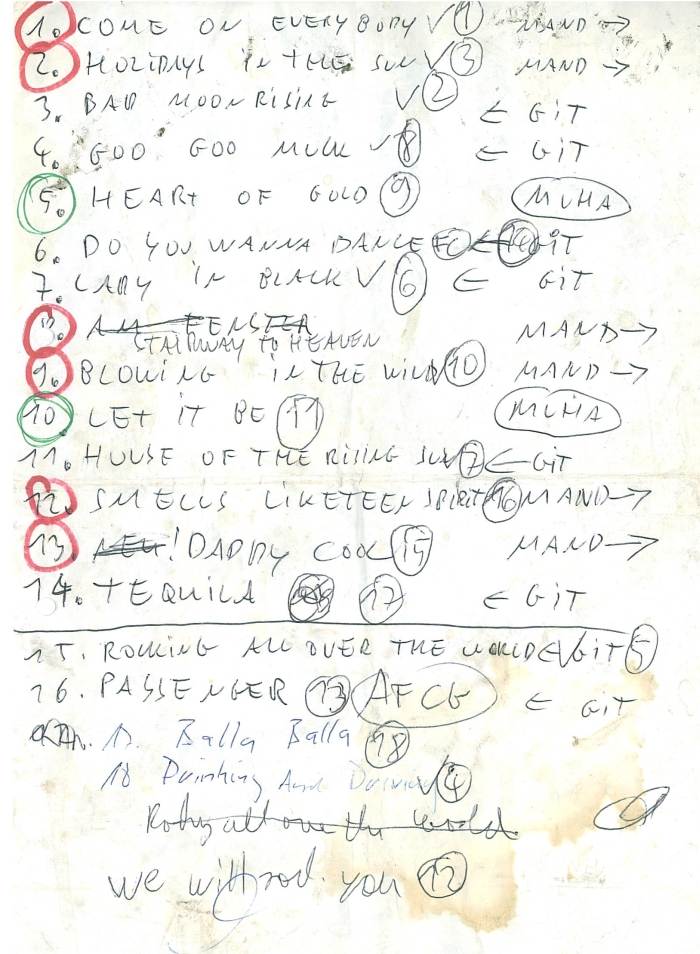 1. COME ON EVERYBODY √ 1 MAND →
2. HOLIDAYS IN THE SUN √ 3 MAND →
3. BAD MOON RISING √ 2 ← GIT
4. GOO GOO MUCK √ 8 ← GIT
5. HEART OF GOLD 9 MUHA
6. DO YOU WANNA DANCE ← 14 GIT
7. LADY IN BLACK √ 6 ← GIT
8. AM FENSTER MAND →
STAIRWAY TO HEAVEN
9. BLOWING IN THE WIND 10 MAND →
10. LET IT BE 11 MUHA
11. HOUSE OF THE RISING SUN 7 ← GIT
12. SMELLS LIKE TEEN SPIRIT 16 MAND →
13. NEU! DADDY COOL 15 MAND →
14. TEQUILA 17 ← GIT
15. ROCKING ALL OVER THE WORLD ← √ GIT 5
16. PASSENGER 13 AFCG ← GIT
17. Balla Balla 18
18 Drinking And Driving √ 4
we will rock you 12